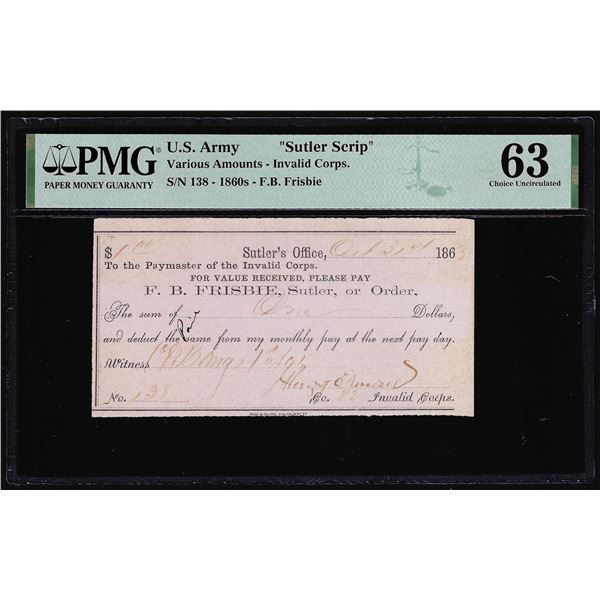 PMG
PAPER MONEY GUARANTY
U.S. Army "Sutler Scrip"
Various Amounts - Invalid Corps.
S/N 138 - 1860s - F.B. Frisbie
63
Choice Uncirculated
$1 00 Sutler's Office, Oct 31st 1863
To the Paymaster of the Invalid Corps.
FOR VALUE RECEIVED, PLEASE PAY
F. B. FRISBIE, Sutler, or Order,
The sum of One Dollars,
and deduct the same from my monthly pay at the next pay day.
Witness
No. 138 Co. Invalid Corps.